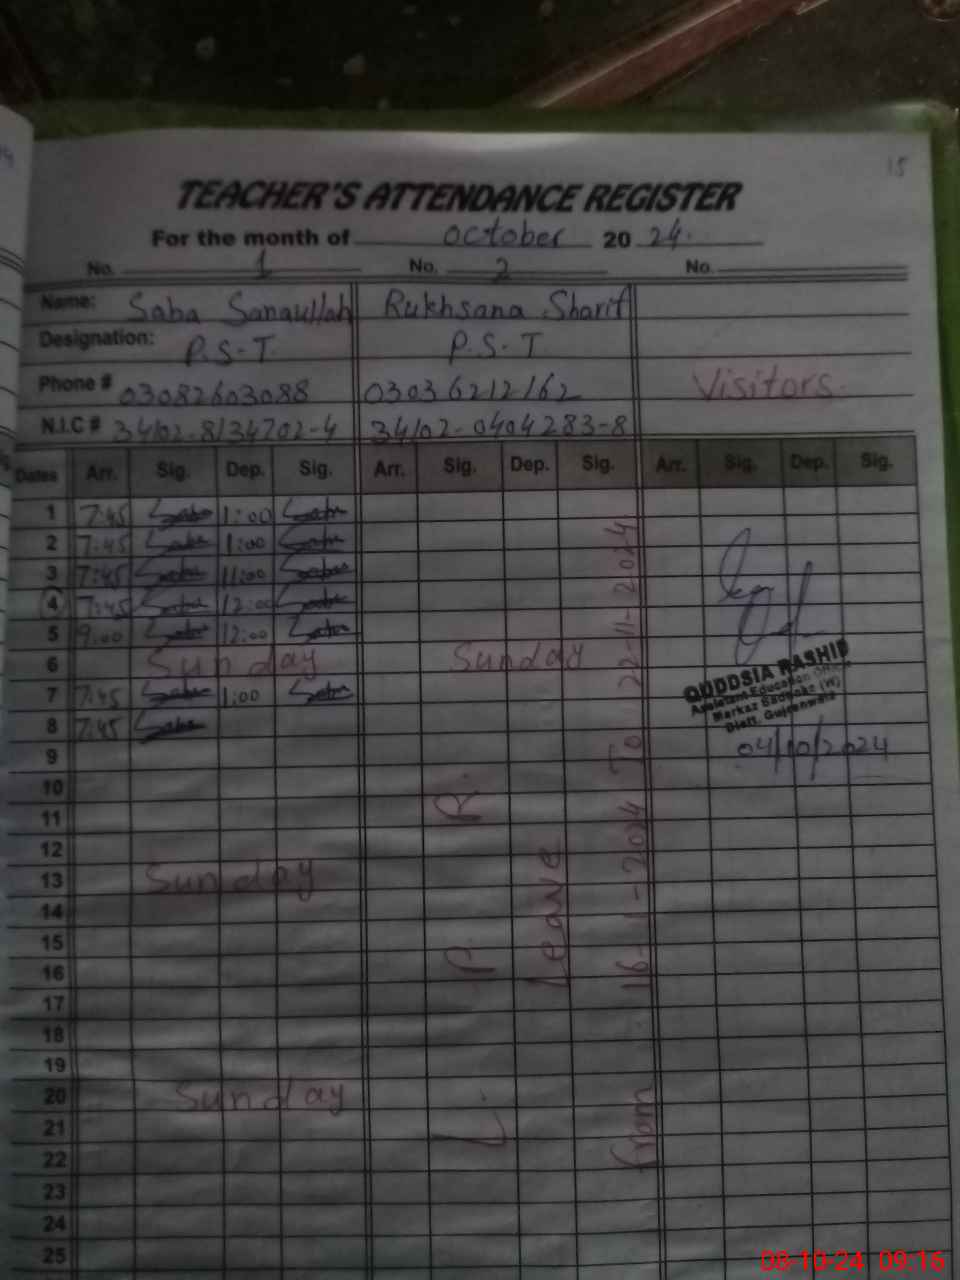 15
TEACHER'S ATTENDANCE REGISTER
For the month of October 20 24.
No. 1 No. 2 No.
Name: Saba Sanaullah Rukhsana Sharif
Designation: P.S-T P.S.T
Phone # 03082603088 03036212162 Visitors.
N.I.C # 34102-8134702-4 34102-0404283-8
Dates Arr. Sig. Dep. Sig. Arr. Sig. Dep. Sig. Arr. Sig. Dep. Sig.
1 7:45 Saba 1:00 Saba
2 7:45 Saba 1:00 Saba
3 7:45 Saba 11:00 Saba
4 7:45 Saba 12:00 Saba
5 9:00 Saba 12:00 Saba
6 Sunday Sunday
7 7:45 Saba 1:00 Saba
8 7:45 Saba
9
10
11
12
13 Sunday
14
15
16
17
18
19
20 Sunday
21
22
23
24
25
L.P.R.
Leave
from 16-1-2024 To 22-11-2024
QUDDSIA RASHID
Assistant Education Officer
Markaz Sadhoke (W)
Distt. Gujranwala
04/10/2024
08-10-24 09:16